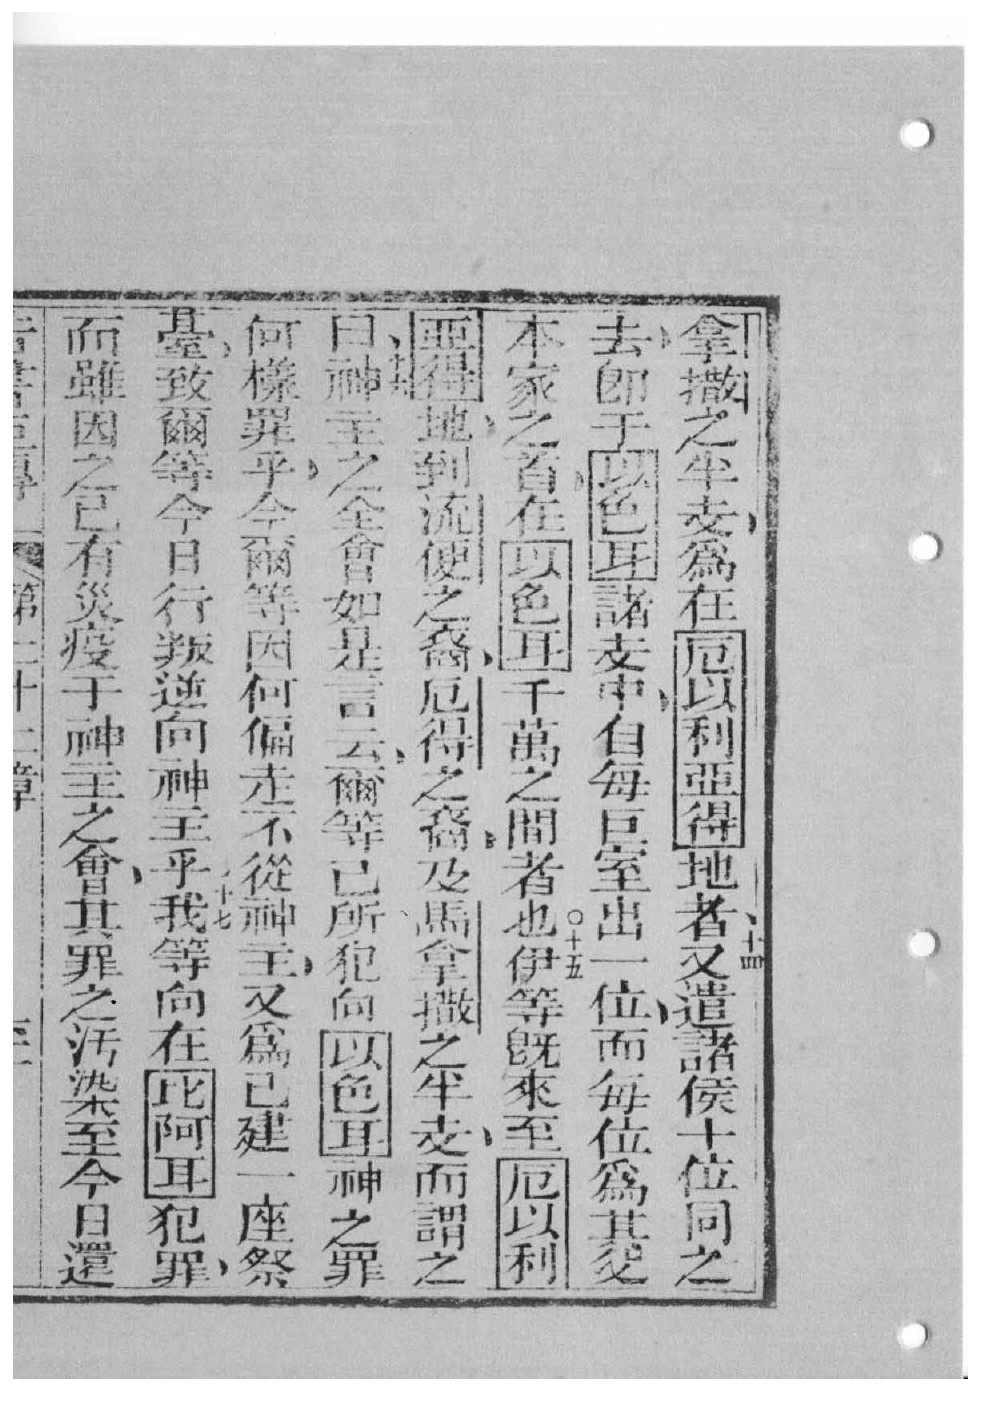 拿撒之半支為在厄以利亞得地者十四又遣諸侯十位同之
去卽于以色耳諸支中自每巨室出一位而每位為其父
本家之首在以色耳千萬之間者也○十五伊等旣來至厄以利
亞得地到流便之裔厄得之裔及馬拿撒之半支而謂之
曰十六神主之全會如是言云爾等已所犯向以色耳神之罪
何樣罪乎今爾等因何偏走不從神主又為己建一座祭
臺致爾等今日行叛逆向神主乎十七我等向在比阿耳犯罪
而雖因之已有災疫于神主之會其罪之汚染至今日還
第二十二章